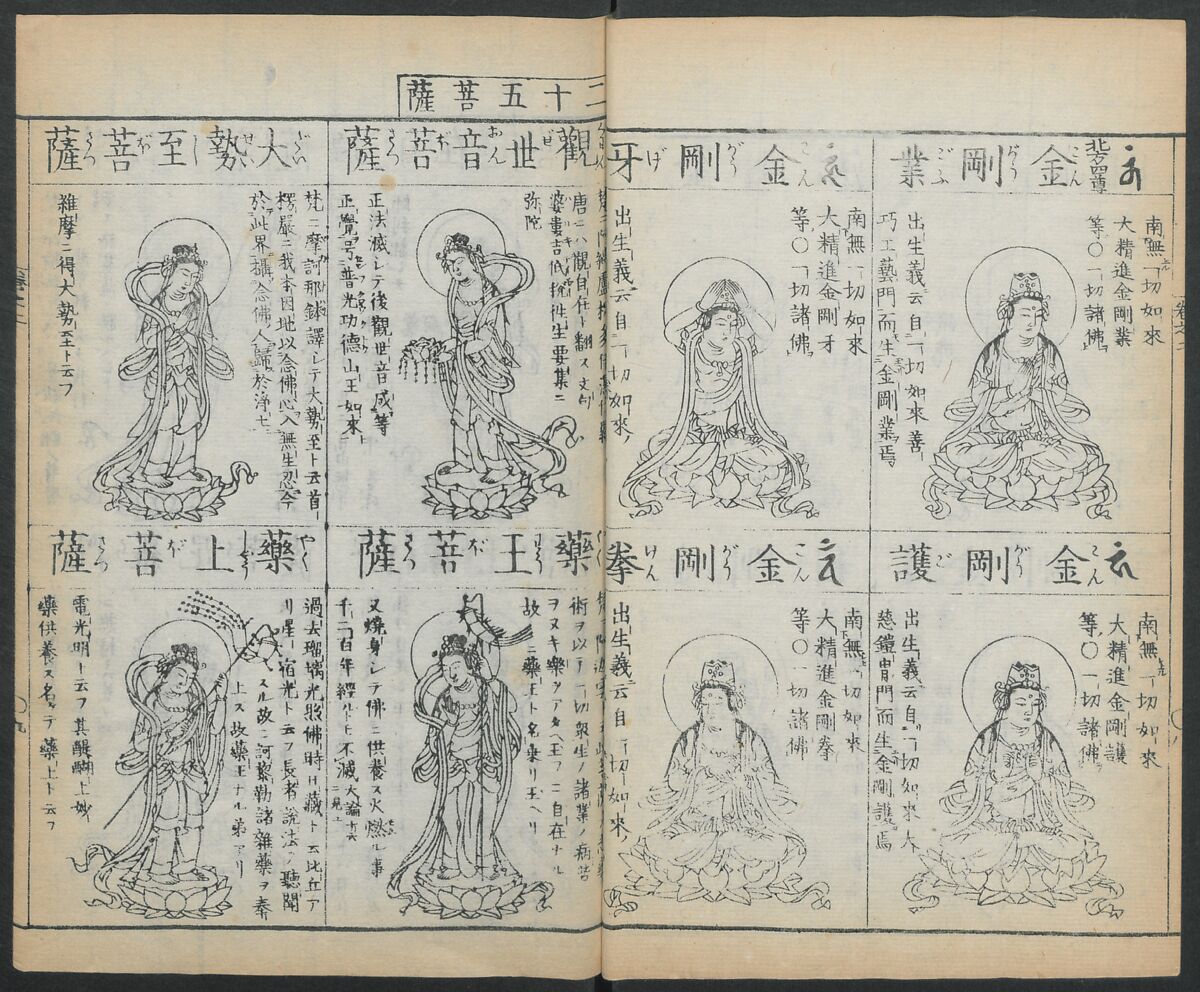 北方四尊
金剛業
こんがうごふ
南無一切如來
大精進金剛業
等〇一切諸佛
出生義云自一切如來善
巧工藝門而生金剛業焉
金剛護
こんがうご
南無一切如來
大精進金剛護
等〇一切諸佛
出生義云自一切如來大
慈鎧冑門而生金剛護焉
金剛牙
こんがうげ
南無一切如來
大精進金剛牙
等〇一切諸佛
出生義云自一切如來
金剛拳
こんがうけん
南無一切如來
大精進金剛拳
等〇一切諸佛
出生義云自一切如來
二十五菩薩
觀世音菩薩
唐ニハ觀自在ト翻ス文句
婆婁吉低捨往生要集ニ
弥陀
正法滅シテ後觀世音成等
正覺号普光功德山王如來
大勢至菩薩
梵ニ摩訶那鉢譯シテ大勢至ト云首
楞嚴ニ我本因地以念佛心入無生忍今
於此界攝念佛人歸於浄土
維摩ニ得大勢至ト云フ
藥王菩薩
術ヲ以テ一切衆生ノ諸業ノ病苦
ヲヌキ樂ヲアタヘ玉フニ自在ナル
故ニ藥王ト名乗リ玉ヘリ
又燒身シテ佛ニ供養ス火燃ル事
千二百年經ルト不滅
藥上菩薩
過去瑠璃光照佛時日藏ト云比丘ア
リ星宿光ト云フ長者說法ヲ聽聞
スル故ニ訶梨勒諸雜藥ヲ奉
上ス故藥王ナル弟アリ
電光明ト云フ其醍醐上妙
藥供養ス名テ藥上ト云フ